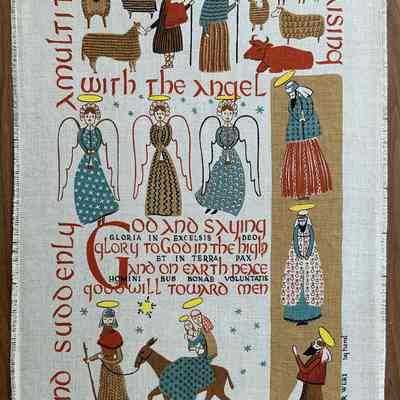 and suddenly
a multit
with the angel
aising
God and saying
GLORIA IN EXCELSIS DEO
glory to God in the high
ET IN TERRA PAX
and on earth peace
HOMINI BUS BONAE VOLUNTATIS
good will toward men
by hand